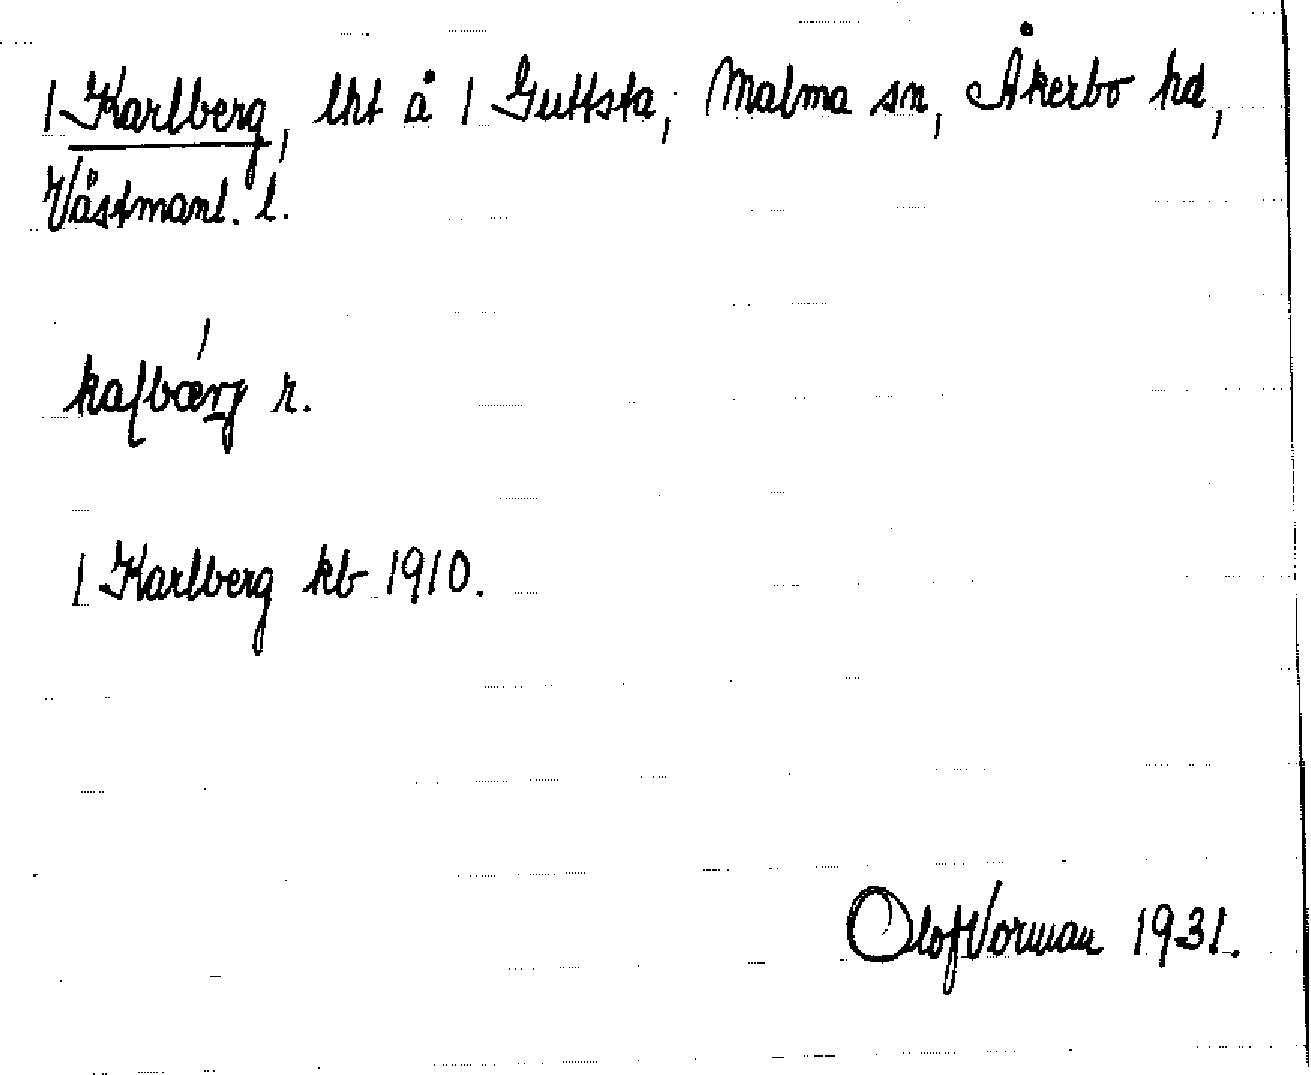 1 Karlberg, lht å 1 Guttsta, Malma sn, Åkerbo hd,
Västmanl. l.
r.
1 Karlberg kb 1910.
Olof Vorman 1931.